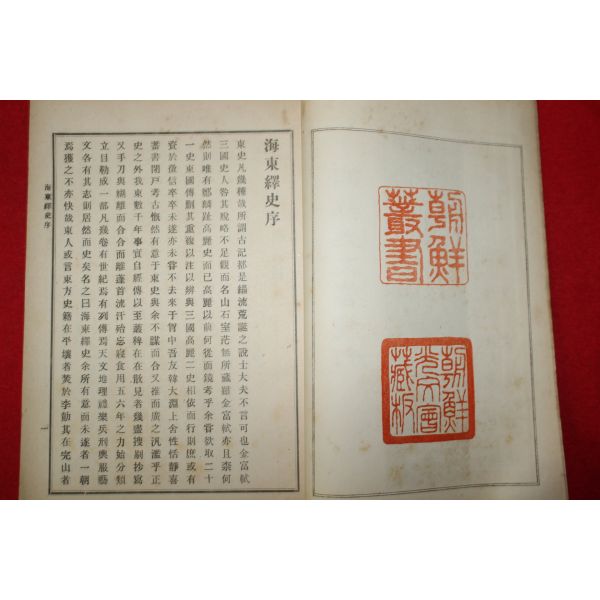 朝鮮
叢書
朝鮮
光文會
藏板
海東繹史序
東史凡幾種哉所謂古記都是緇流荒誕之說士大夫不言可也金富軾
三國史人咎其脫略不足觀而名山石室茫無所藏雖金富軾亦且柰何
然則唯有鄭麟趾高麗史而已高麗以前何從而鏡考乎余嘗欲取二十
一史東國傳刪其重複以注以辨與三國高麗二史相依而行則庶或有
資於徵信卒卒未遂亦未嘗不去來于胷中吾友韓大淵上舍性恬靜喜
蓄書閉戶考古慨然有意于東史與余不謀而合又推而廣之汎濫乎正
史之外我東數千年事實自經傳以至叢稗在在散見者幾盡搜剔抄寫
又手刀與糊離而合合而離蓬首流汗殆忘寢食用五六年之力始分類
立目勒成一部凡幾卷有世紀焉有列傳焉天文地理禮樂兵刑輿服藝
文各有其志則居然而史矣名之曰海東繹史余所有意而未遂者一朝
焉獲之不亦快哉東人或言東方史籍在平壤者焚於李勣其在完山者
海東繹史序
一